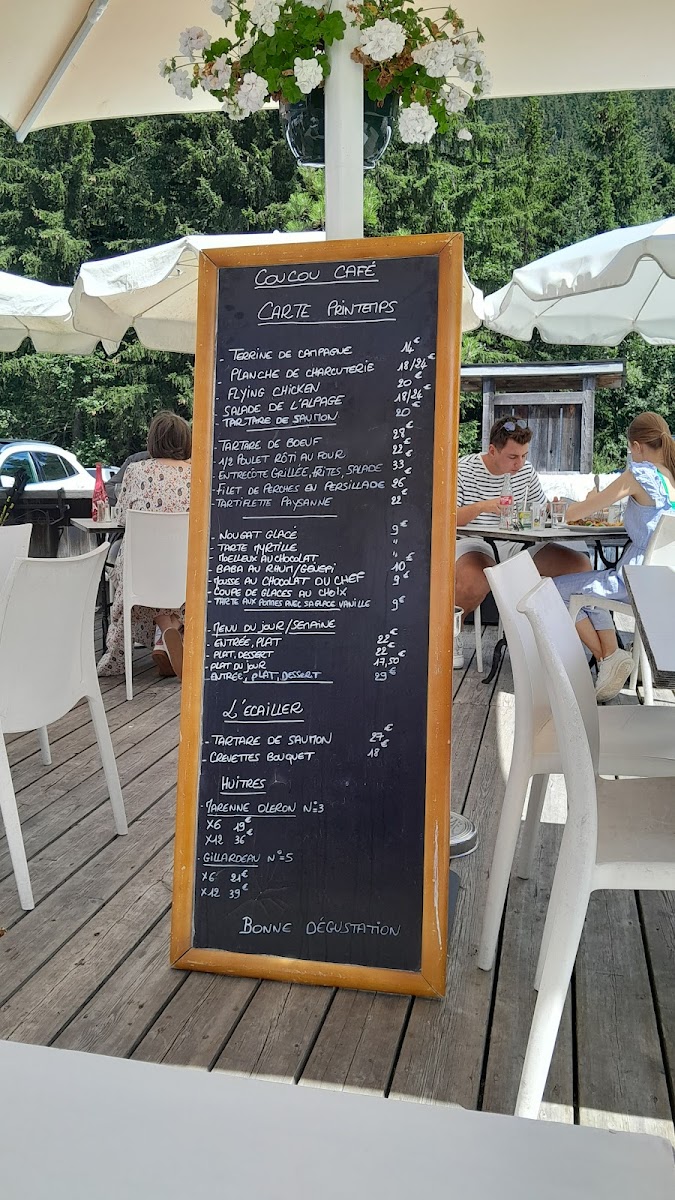 COUCOU CAFÉ
CARTE PRINTEMPS
- TERRINE DE CAMPAGNE 14€
- PLANCHE DE CHARCUTERIE 18/24€
- FLYING CHICKEN 20€
- SALADE DE L'ALPAGE 18/24€
- TARTARE DE SAUMON 20€
- TARTARE DE BOEUF 28€
- 1/2 POULET RÔTI AU FOUR 22€
- ENTRECÔTE GRILLÉE, FRITES, SALADE 33€
- FILET DE PERCHES EN PERSILLADE 26€
- TARTIFLETTE PAYSANNE 22€
- NOUGAT GLACÉ 9€
- TARTE MYRTILLE "
- MOELLEUX AU CHOCOLAT "
- BABA AU RHUM/GENEPI 10€
- MOUSSE AU CHOCOLAT DU CHEF 9€
- COUPE DE GLACES AU CHOIX
- TARTE AUX POMMES AVEC SA GLACE VANILLE 9€
- MENU DU JOUR/SEMAINE
- ENTRÉE, PLAT 22€
- PLAT, DESSERT 22€
- PLAT DU JOUR 17,50€
- ENTRÉE, PLAT, DESSERT 29€
L'ÉCAILLER
- TARTARE DE SAUMON 27€
- CREVETTES BOUQUET 18€
HUITRES
- MARENNE OLERON N°=3
X6 19€
X12 36€
- GILLARDEAU N°=5
X6 21€
X12 39€
BONNE DÉGUSTATION